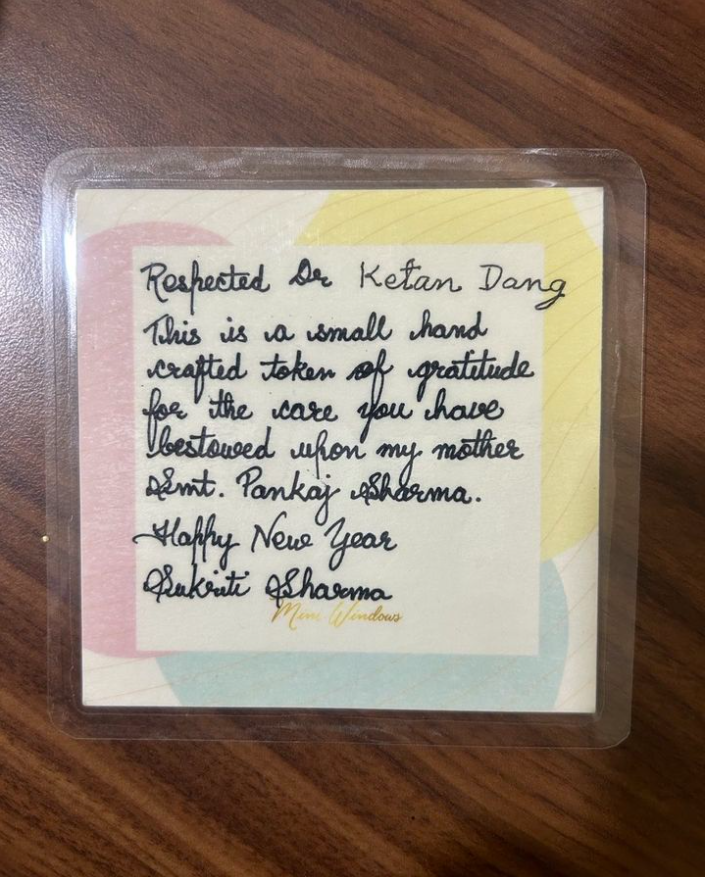 Respected Dr Ketan Dang
This is a small hand
crafted token of gratitude
for the care you have
bestowed upon my mother
Smt. Pankaj Sharma.
Happy New Year
Sukriti Sharma
Mini Windows